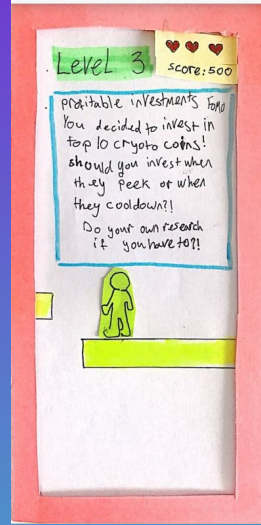 Level 3
score: 500
profitable investments FOMO
You decided to invest in
top 10 cryoto coins!
should you invest when
they peek or when
they cooldown?!
Do your own research
if you have to?!